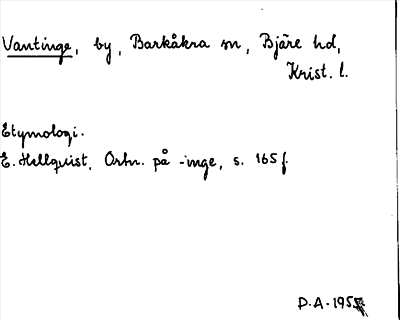 Vantinge, by, Barkåkra sn, Bjäre hd,
Krist. l.
Etymologi.
E. Hellquist, Ortn. på -inge, s. 165 f.
D.A. 195